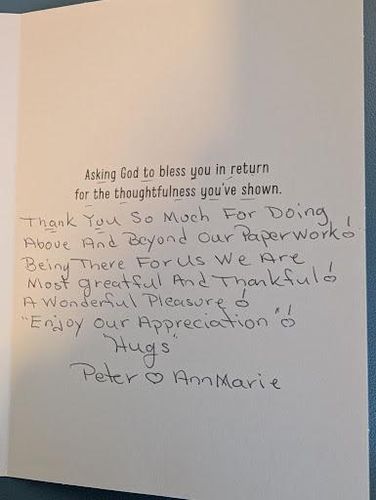 Asking God to bless you in return
for the thoughtfulness you've shown.
Thank You So Much For Doing
Above And Beyond Our Paperwork!
Being There For Us We Are
Most greatful And Thankful!
A Wonderful Pleasure!
"Enjoy Our Appreciation"!
"Hugs"
Peter ♡ AnnMarie